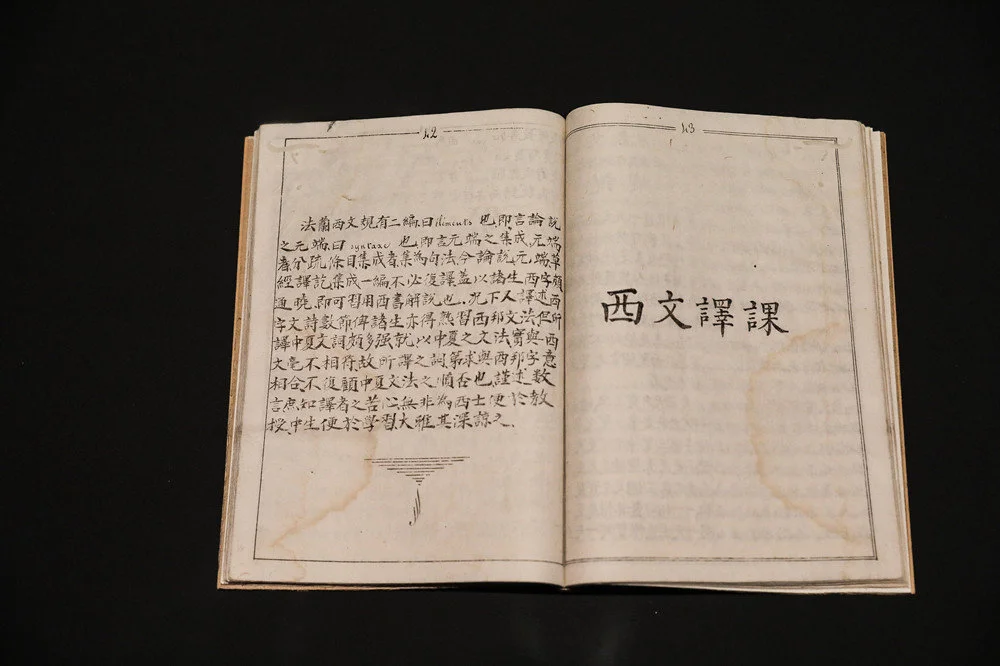 42
法蘭西文規有二編、曰 éléments 也、即言論說
之元端、曰 syntaxe 也、即言元端之集成、元端
者分疏條目集成者集為句法、今論說元端草
經譯訖、集成一編不必復譯、蓋以諸生西字頗
通曉、即可習用西書解說也、况下人譯述西
字文詩數節俾諸生亦得熟習西邦文法、但所
譯中夏文詞頗多强就、以中夏之文法實與西
文毫不相符、故所譯之詞第求與西邦字意
相合、不復顧中夏文法之順否也、謹述數
言庶知譯者之苦心、無非為西士便於教
授、中生便於學習、大雅其深諒之、
43
西文譯課